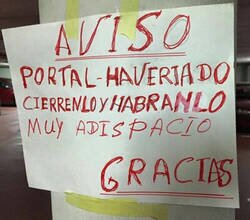 AVISO
PORTAL-HAVERIADO
CIERRENLO Y HABRANLO
MUY ADISPACIO
GRACIAS